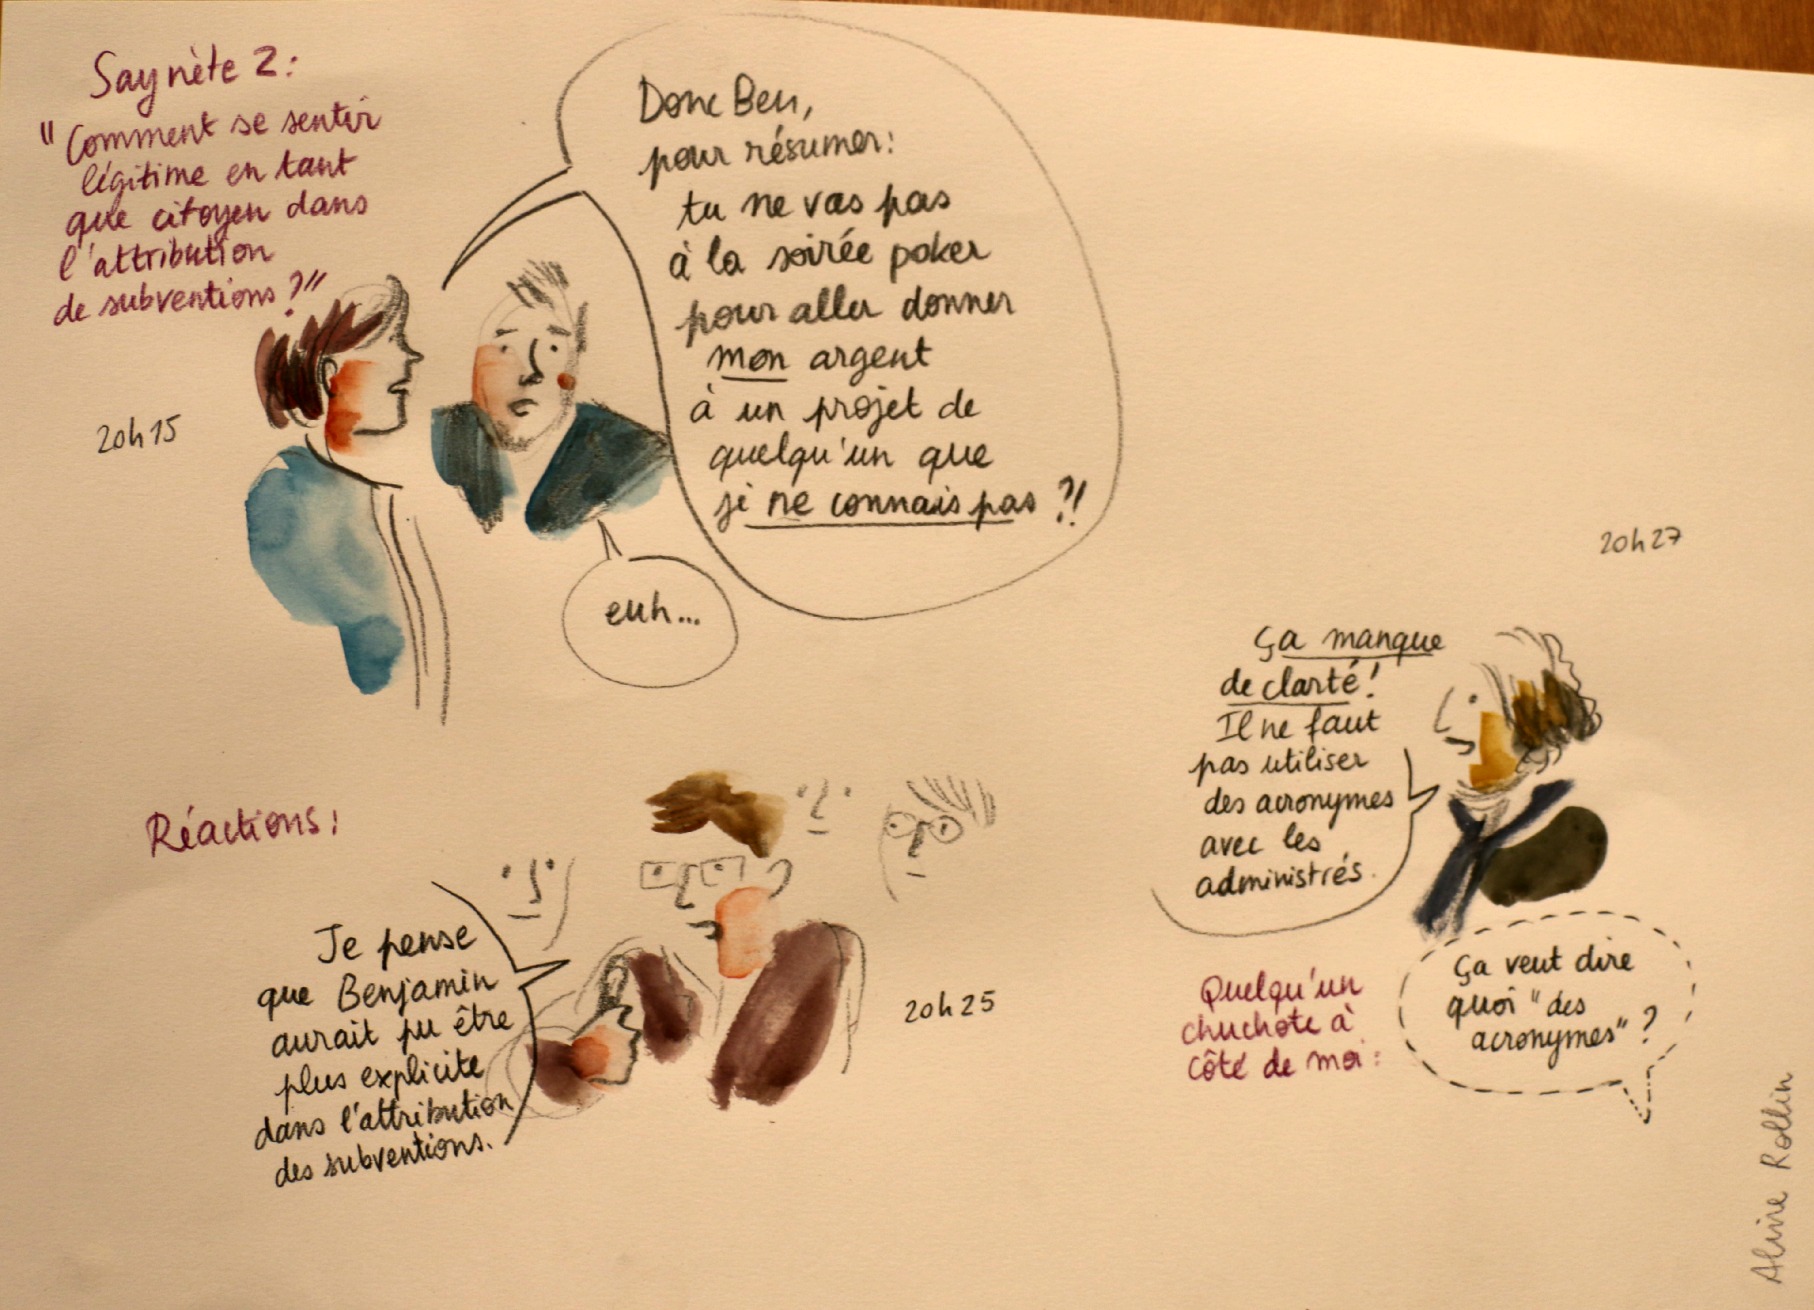 Saynète 2:
"Comment se sentir
légitime en tant
que citoyen dans
l'attribution
de subventions ?"
20h15
Donc Ben,
pour résumer:
tu ne vas pas
à la soirée poker
pour aller donner
mon argent
à un projet de
quelqu'un que
je ne connais pas ?!
euh...
Réactions:
Je pense
que Benjamin
aurait pu être
plus explicite
dans l'attribution
des subventions.
20h25
20h27
Ça manque
de clarté!
Il ne faut
pas utiliser
des acronymes
avec les
administrés.
Quelqu'un
chuchote à
côté de moi:
Ça veut dire
quoi "des
acronymes" ?
Aline Rollin